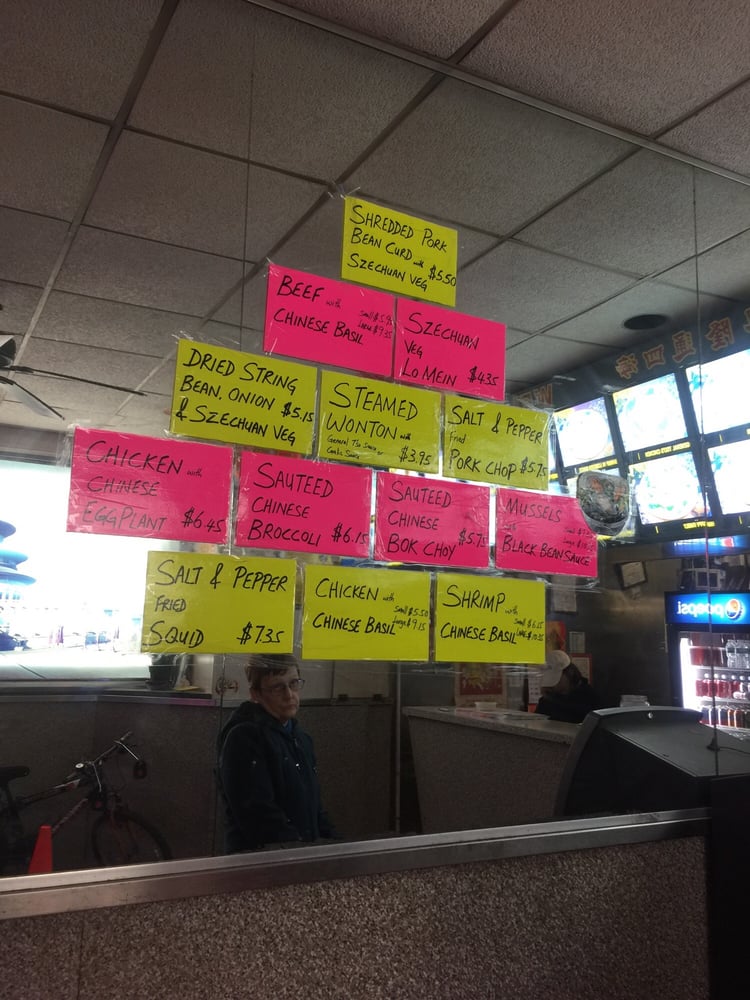 SHREDDED PORK
BEAN CURD with
SZECHUAN VEG $5.50
BEEF with
CHINESE BASIL
SZECHUAN
VEG
LO MEIN $4.35
DRIED STRING
BEAN, ONION $5.15
& SZECHUAN VEG
STEAMED
WONTON with
General Tso Sauce or
Garlic Sauce $3.95
SALT & PEPPER
fried
PORK CHOP $5.75
CHICKEN with
CHINESE
EGGPLANT $6.45
SAUTEED
CHINESE
BROCCOLI $6.15
SAUTEED
CHINESE
BOK CHOY $5.75
MUSSELS
BLACK BEAN SAUCE
SALT & PEPPER
FRIED
SQUID $7.35
CHICKEN with
small $5.50
CHINESE BASIL large $9.15
SHRIMP with
small $6.25
CHINESE BASIL
pepsi